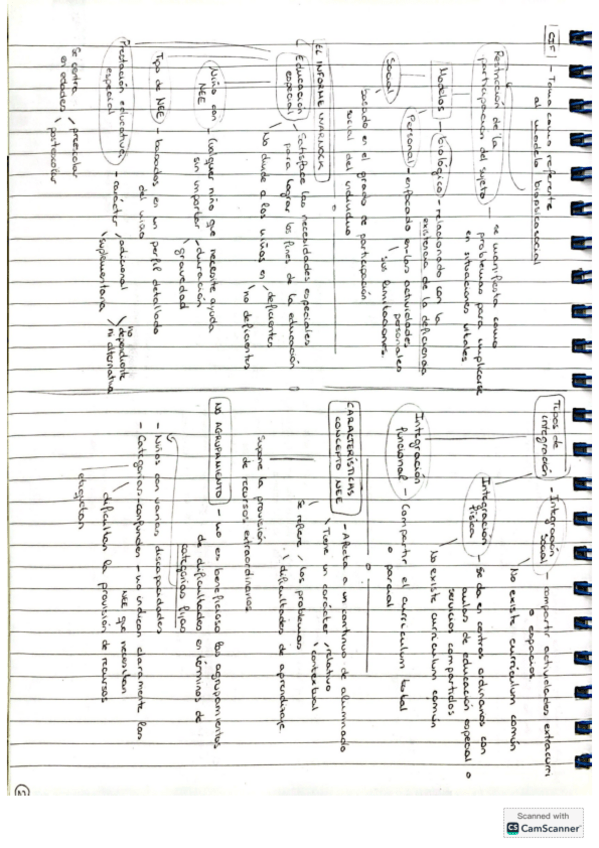 CIF - Toma como referente
al modelo biopsicosocial
Restricción de la
participación del sujeto - se manifiesta como
problemas para implicarse
en situaciones vitales
Modelos - biológico - relacionado con la
existencia de la deficiencia
Personal - enfocado en las actividades
personales
sus limitaciones.
Social
basado en el grado de participación
social del individuo
EL INFORME WARNOCK
Educación
especial
Satisface las necesidades especiales
para lograr los fines de la educación
No divide a los niños en
deficientes
no deficientes
Niño con
NEE - Cualquier niño que necesite ayuda
sin importar
duración
gravedad
Tipo de NEE - basados en un perfil detallado
del niño
Prestación educativa
especial - carácter
adicional
suplementaria
no
dependiente
ni alternativa
Se centra
en edades
preescolar
postescolar
Tipos de
integración - Integración
social - compartir actividades extracurri
o espacios
No existe currículum común
Integración
física - Se da en centros ordinarios con
aulas de educación especial o
servicios compartidos
No existe currículum común
Integración
funcional - Compartir el currículum total
o parcial
CARACTERÍSTICAS
CONCEPTO NEE - Afecta a un continuo de alumnado
Tiene un carácter
relativo
contextual
Se refiere
los problemas
dificultades de aprendizaje
Supone la provisión
de recursos extraordinarios
NO AGRUPAMIENTO - no en beneficioso los agrupamientos
de dificultades en términos de
categorías fijas
- Niños con varias discapacidades
- Categorías confunden - no indican claramente las
NEE que necesitan
dificultan la provisión de recursos
etiquetan
2
Scanned with
CS CamScanner